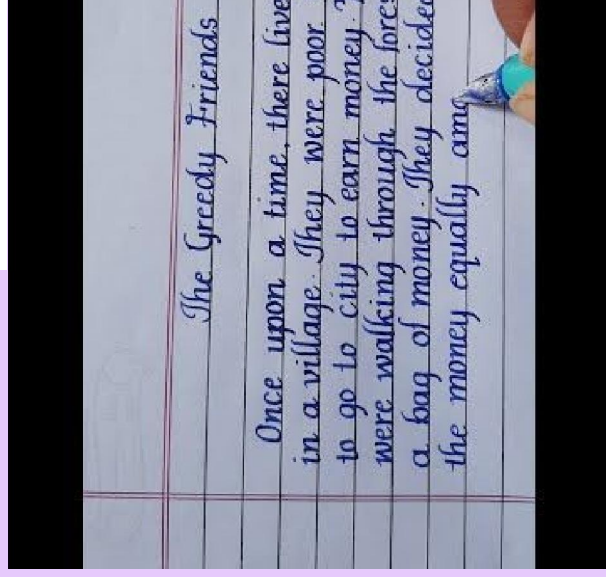 The Greedy Friends
Once upon a time, there live
in a village. They were poor.
to go to city to earn money.
were walking through the fores
a bag of money. They decided
the money equally amo